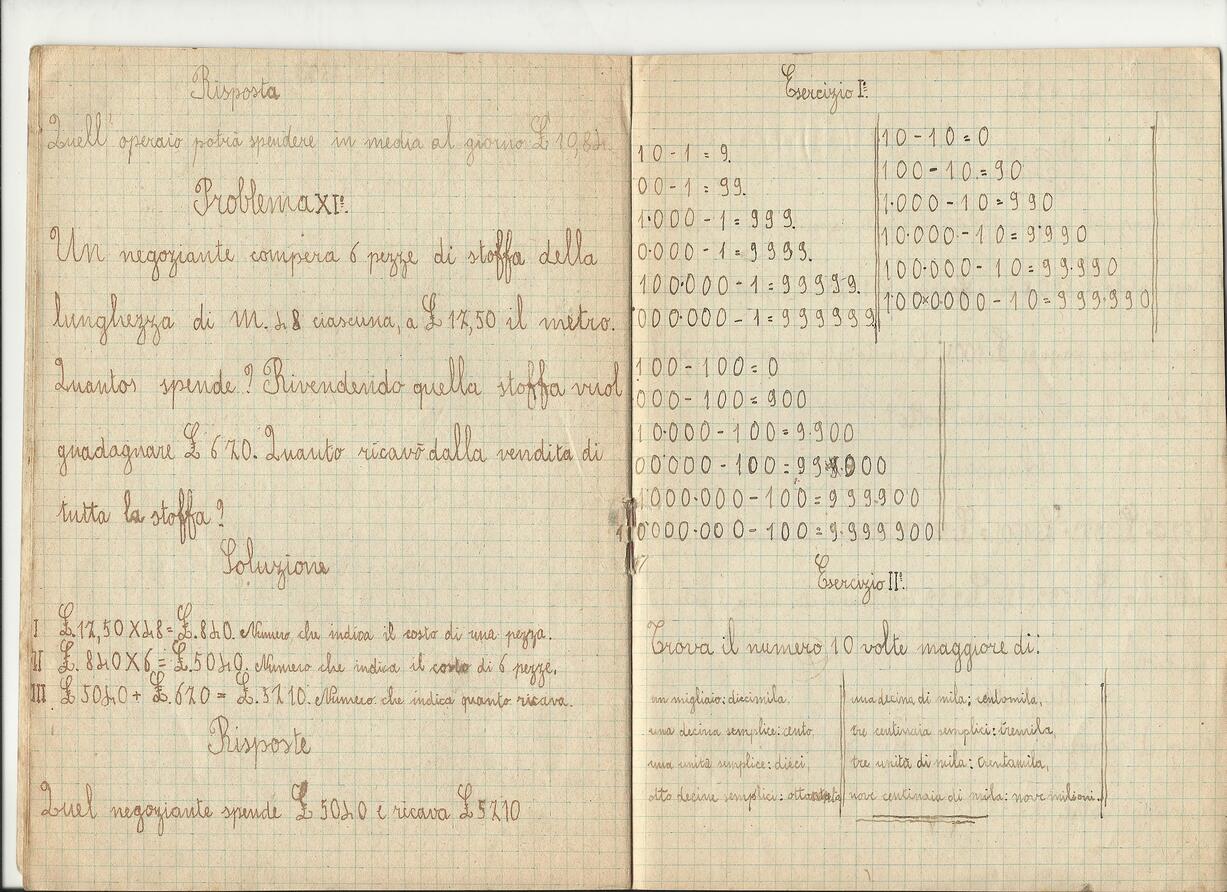 Risposta
Quell' operaio potrà spendere in media al giorno £ 10,84.
Problema XIº.
Un negoziante compera 6 pezze di stoffa della
lunghezza di m. 48 ciascuna, a £ 17,50 il metro.
Quantos spende? Rivendendo quella stoffa vuol
guadagnare £ 670. Quanto ricavò dalla vendita di
tutta la stoffa?
Soluzione
I £.17,50 X 48 = £.840. Numero che indica il costo di una pezza.
II £. 840 X 6 = £.5040. Numero che indica il costo di 6 pezze.
III £ 5040 + £.670 = £.5710. Numero che indica quanto ricava.
Risposte
Quel negoziante spende £ 5040 e ricava £ 5710
Esercizio Iº.
10-1=9.
00-1=99.
1.000-1=999.
0.000-1=9999.
100.000-1=99999.
000.000-1=999999
10-10=0
100-10=90
1.000-10=990
10.000-10=9.990
100.000-10=99.990
100.0000-10=999.990
100-100=0
000-100=900
10.000-100=9.900
00.000-100=99.000
1000.000-100=999.900
10000.000-100=9.999900
Esercizio IIº.
Trova il numero 10 volte maggiore di:
un migliaio: diecimila.
una decina semplice: cento,
una unità semplice: dieci,
otto decine semplici: ottocento
una decina di mila; centomila,
tre centinaia semplici: tremila,
tre unità di mila: trentamila,
nove centinaia di mila: nove milioni.